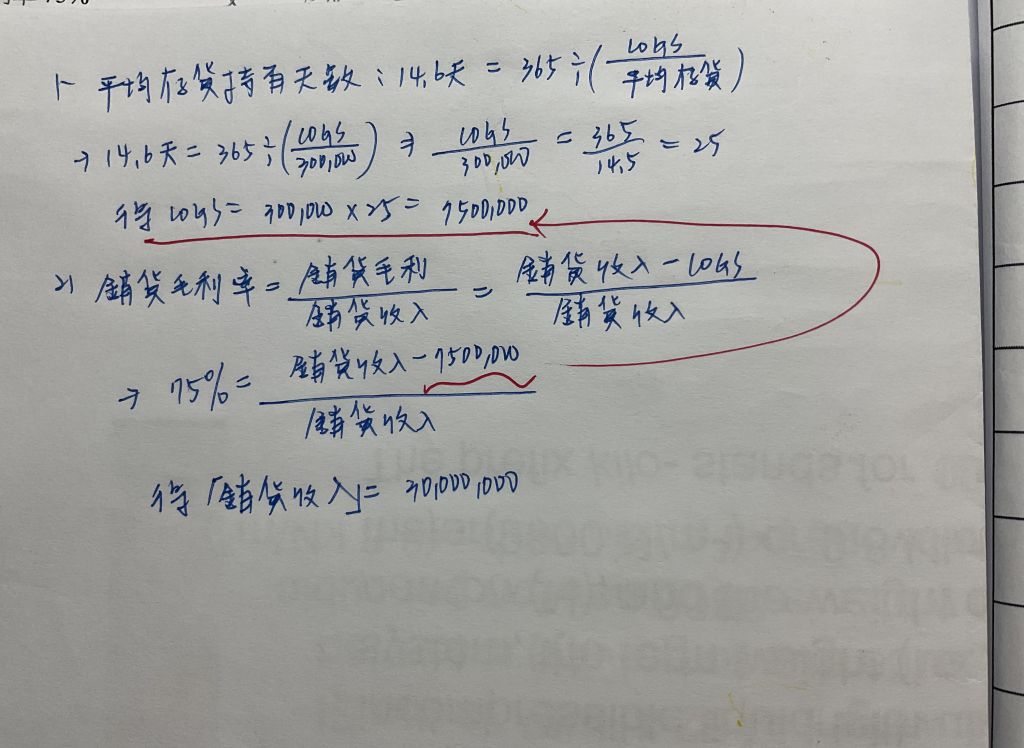 1、平均存貨持有天數：14.6天 = 365 ÷ (COGS / 平均存貨)
→ 14.6天 = 365 ÷ (COGS / 300,000) ⇒ COGS / 300,000 = 365 / 14.5 = 25
得 COGS = 300,000 × 25 = 7500,000
2、銷貨毛利率 = 銷貨毛利 / 銷貨收入 = 銷貨收入 - COGS / 銷貨收入
→ 75% = 銷貨收入 - 7500,000 / 銷貨收入
得「銷貨收入」= 30,000,000